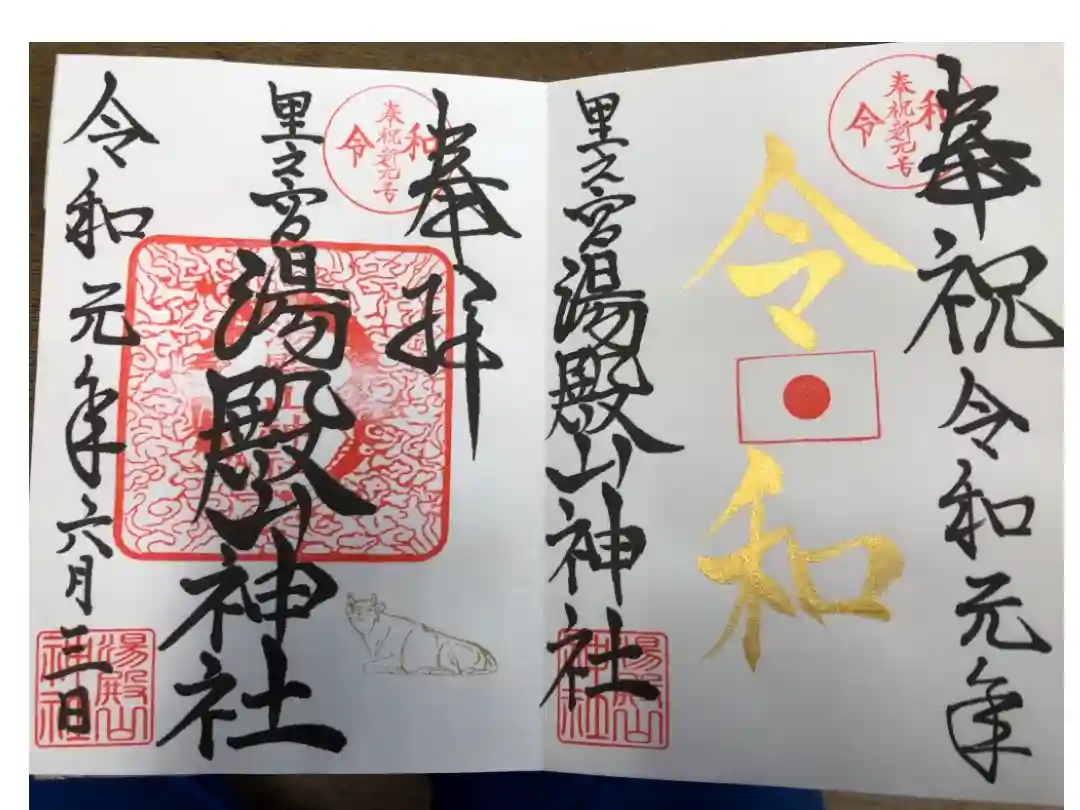 奉祝 令和元年
奉祝新元号
令和
令
和
里之宮 湯殿山神社
湯殿山
神社
奉拝
奉祝新元号
令和
里之宮 湯殿山神社
令和元年六月三日
湯殿山
神社